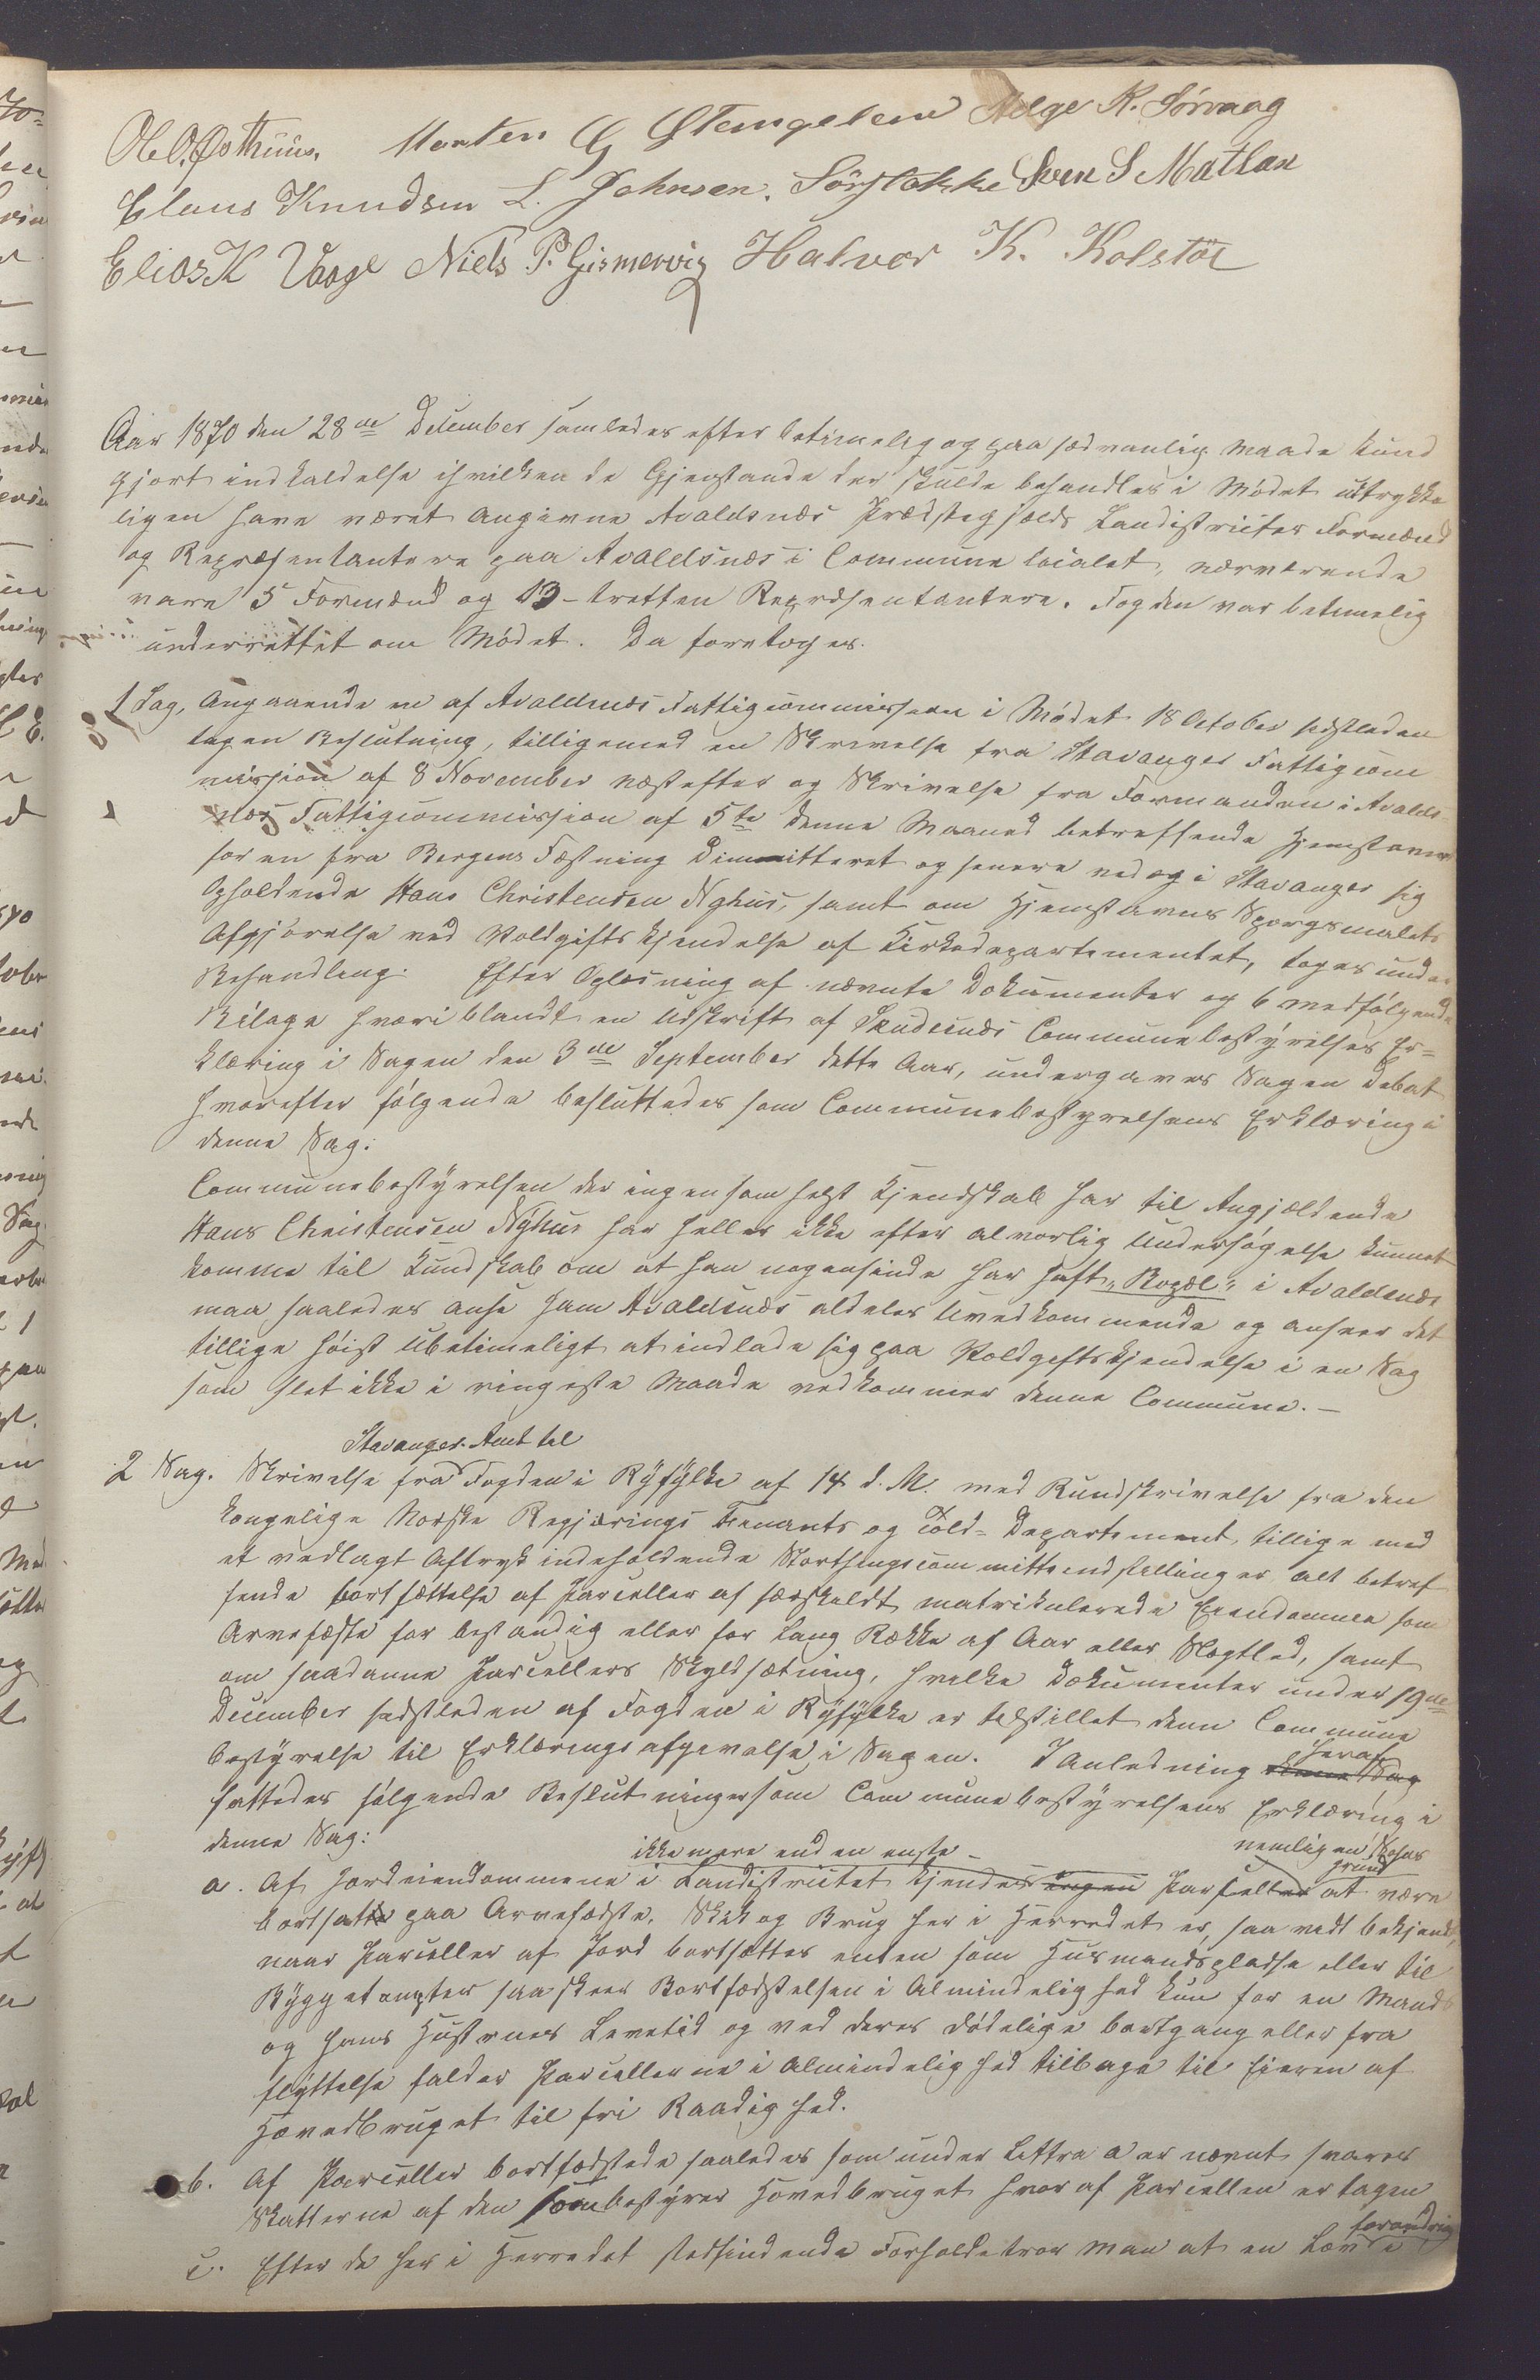 Ole O. Østhuus. Morten G Stemgelem Helge K. Sørvaag
Claus Knudsen L. Johnsen. Sørstokke Sven S Matlan
Elias K Vaage Niels P. Gismervig Halvor K. Kolstöe
Aar 1870 den 28de December samledes efter betimelig og paa sædvanlig Maade kund
gjort indkaldelse ihvilken de Gjenstande der skulde behandles i Mødet udtrykke
ligen have været angivne Avaldsnæs Prædstegjælds Landistricter Formænd
og Repræsentantere paa Avaldsnæs i Commune localet, nærværende
vare 5 Formænd og 13-tretten Repræsentantere. Fogden var betimelig
underrettet om Mødet. Da foretoges.
1 Sag, Angaaende en af Avaldsnæs Fattigcommission i Mødet 18 October sidstleden
tagen Beslutning, tilligemed en Skrivelse fra Stavanger Fattigcom
mission af 8 November næstefter og Skrivelse fra Formanden i Avalds-
næs Fattigcommission af 5te denne Maaned betreffende Hjemstavn
for en fra Bergens Fæstning Dimmitteret og senere ved og i Stavanger sig
Opholdende Hans Christensen Nyhus, samt om Hjemstavns Spørgsmalets
Afgjørelse ved Voldgifts kjendelse af Kirkedepartementet, toges under
Behandling. Efter Oplæsning af nævnte Dokumenter og 6 medfølgende
Bilage hvoriblandt en Udskrift af Skudesnæs Communebestyrelses Er=
klæring i Sagen den 3die September dette Aar, undergaves Sagen Debat
hvorefter følgende besluttedes som Communebestyrelsens Erklæring i
denne Sag:
Communebestyrelsen der ingensomhelst Kjendskab har til Angjældende
Hans Christensen Nyhus har heller ikke efter alvorlig Undersøgelse kunnet
komme til Kundskab om at han nogensinde har haft "Bopæl" i Avaldsnæs
maa saaledes anse ham Avaldsnæs aldeles Uvedkommende og anseer det
tillige høist Ubetimeligt at indlade sig paa Voldgiftskjendelse i en Sag
som slet ikke i ringeste Maade vedkommer denne Commune.-
Stavanger Amt til
2 Sag. Skrivelse fra Fogden i Ryfylke af 14 d. M. med Rundskrivelse fra den
kongelige Norske Regjerings Finants og Told-Departement, tillige med
et vedlagt Aftryk indeholdende Storthingscommitteindstillinger alt betref
fende bortsættelse af Parceller af særskildt matrikulerede Eiendomme som
Arvefæste for bestandig eller for lang Række af Aar eller Slægtled, samt
om saadanne Parcellers Skyldsætning, hvilke Dokumenter under 19de
December sidstleden af Fogden i Ryfylke er tilstillet denn Commune
bestyrelse til Erklæringsafgivelse i Sagen. I Anledning denne Sag
heraf
fattedes følgende Beslutninger som Communebestyrelsens Erklæring i
denne Sag:
ikke mere end en enste- nemlig en Skoles
grund
a. Af Jordeiendommene i Landistrictet kjendes ingen Parceller at være
bortsatte paa Arvefædste. Skik og Brug her i Herredet er, saa vidt bekjendt,
naar Parceller af Jord bortsættes enten som Husmandspladse eller til
Byggetompter saa skeer Bortfædstelsen i Almindelighed kun for en Mands
og hans Hustrues Levetid og ved deres dødelige bortgang eller fra
flyttelse falder Parcellerne i Almindelighed tilbage til Eieren af
Hovedbruget til fri Raadighed.
b. Af Parceller bortfædstede saaledes som under Littra a er nævnt svares
Skatterne af den som bestyrer Hovedbruget hvoraf Parcellen er tagen
forandring
c. Efter de her i Herredet stedfindende Forholde tror man at en Lov i